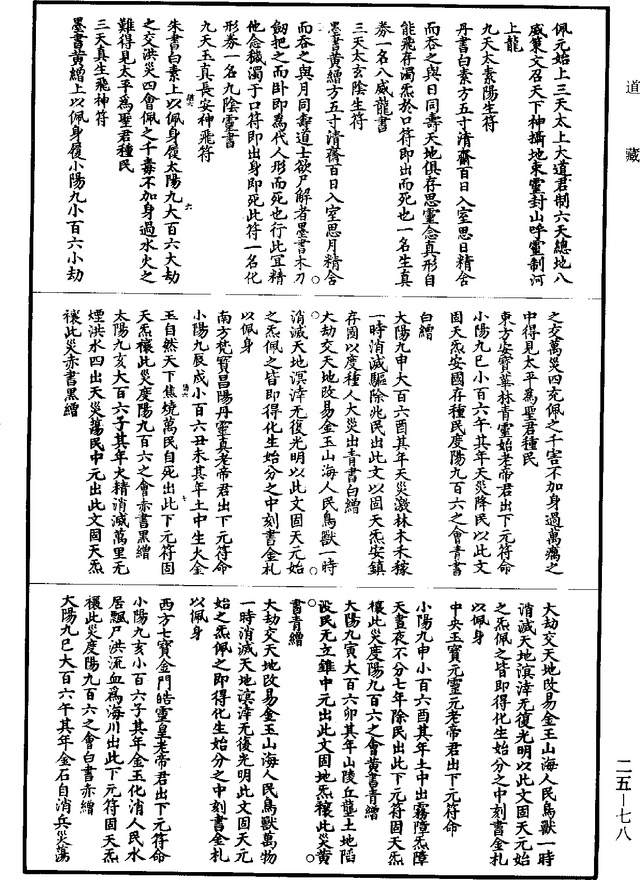 道藏
佩元始上三天太上大道君制六天總地八
威策文召天下神攝地束靈封山呼靈制河
上龍
九天太素陽生符
丹書白素方五寸清齋百日入室思日精舍
而吞之與日同壽天地俱存思靈念真形自
能飛存濁炁於口符即出而死也一名生真
券一名八威龍書
三天太玄陰生符
墨書黃繒方五寸清齋百日入室思月精含
而吞之與月同壽道士欲尸解者墨書木刀
劒把之而卧即為代人形而死也行此宜精
他念穢濁于口符即出身即死此符一名化
形券一名九陰靈書
九天玉真長安神飛符
朱書白素上以佩身履太陽九大百六大劫
之交洪災四會佩之千毒不加身過水火之
難得見太平為聖君種民
三天真生飛神符
墨書黃繒上以佩身履小陽九小百六小劫
之交萬災四充佩之千害不加身過萬癘之
中得見太平為聖君種民
東方安寶華林青靈始老帝君出下元符命
小陽九巳小百六午其年天災降民以此文
固天炁安國存種民度陽九百六之會青書
白繒
大陽九申大百六酉其年天災激林木禾稼
一時消滅驅除兆民出此文以固天炁安鎮
存國以度種人大災出青書白繒
大劫交天地改易金玉山海人民鳥獸一時
消滅天地溟涬无復光明以此文固天元始
之炁佩之皆即得化生始分之中刻書金札
以佩身
南方梵寶昌陽丹靈真老帝君出下元符命
小陽九辰戌小百六丑未其年土中生火金
玉自然天下焦燒萬民自死出此下元符固
天炁禳此災度陽九百六之會赤書黑繒
太陽九亥大百六子其年火精消滅萬里无
煙洪水四出天災蕩民中元出此文固天炁
禳此災赤書黑繒
大劫交天地改易金玉山海人民鳥獸一時
消滅天地溟涬无復光明以此文固天元始
之炁佩之皆即得化生始分之中刻書金札
以佩身
中央玉寶元靈元老帝君出下元符命
小陽九申小百六酉其年土中出霧障炁障
天晝夜不分七年除民出此下元符固天炁
禳此災度陽九百六之會黃書青繒
大陽九寅大百六卯其年山陵丘壟土地陷
改民无立錐中元出此文固地炁禳此災黃
書青繒
大劫交天地改易金玉山海人民鳥獸萬物
一時消滅天地溟涬无復光明此文固天元
始之炁佩之即得化生始分之中刻書金札
以佩身
西方七寶金門皓靈皇老帝君出下元符命
小陽九亥小百六子其年金玉化消人民水
居飄尸洪流血為海川出此下元符固天炁
禳此災度陽九百六之會白書赤繒
大陽九巳大百六午其年金石自消兵災蕩
二五—七八